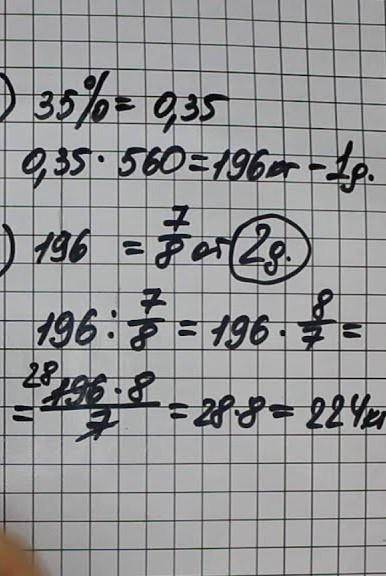 ) 35% = 0,35
0,35 · 560 = 196 кг – 1д.
) 196 = 7/8 от 2д.
196 : 7/8 = 196 · 8/7 =
= 28 196 · 8 / 7 = 28 · 8 = 224 кг